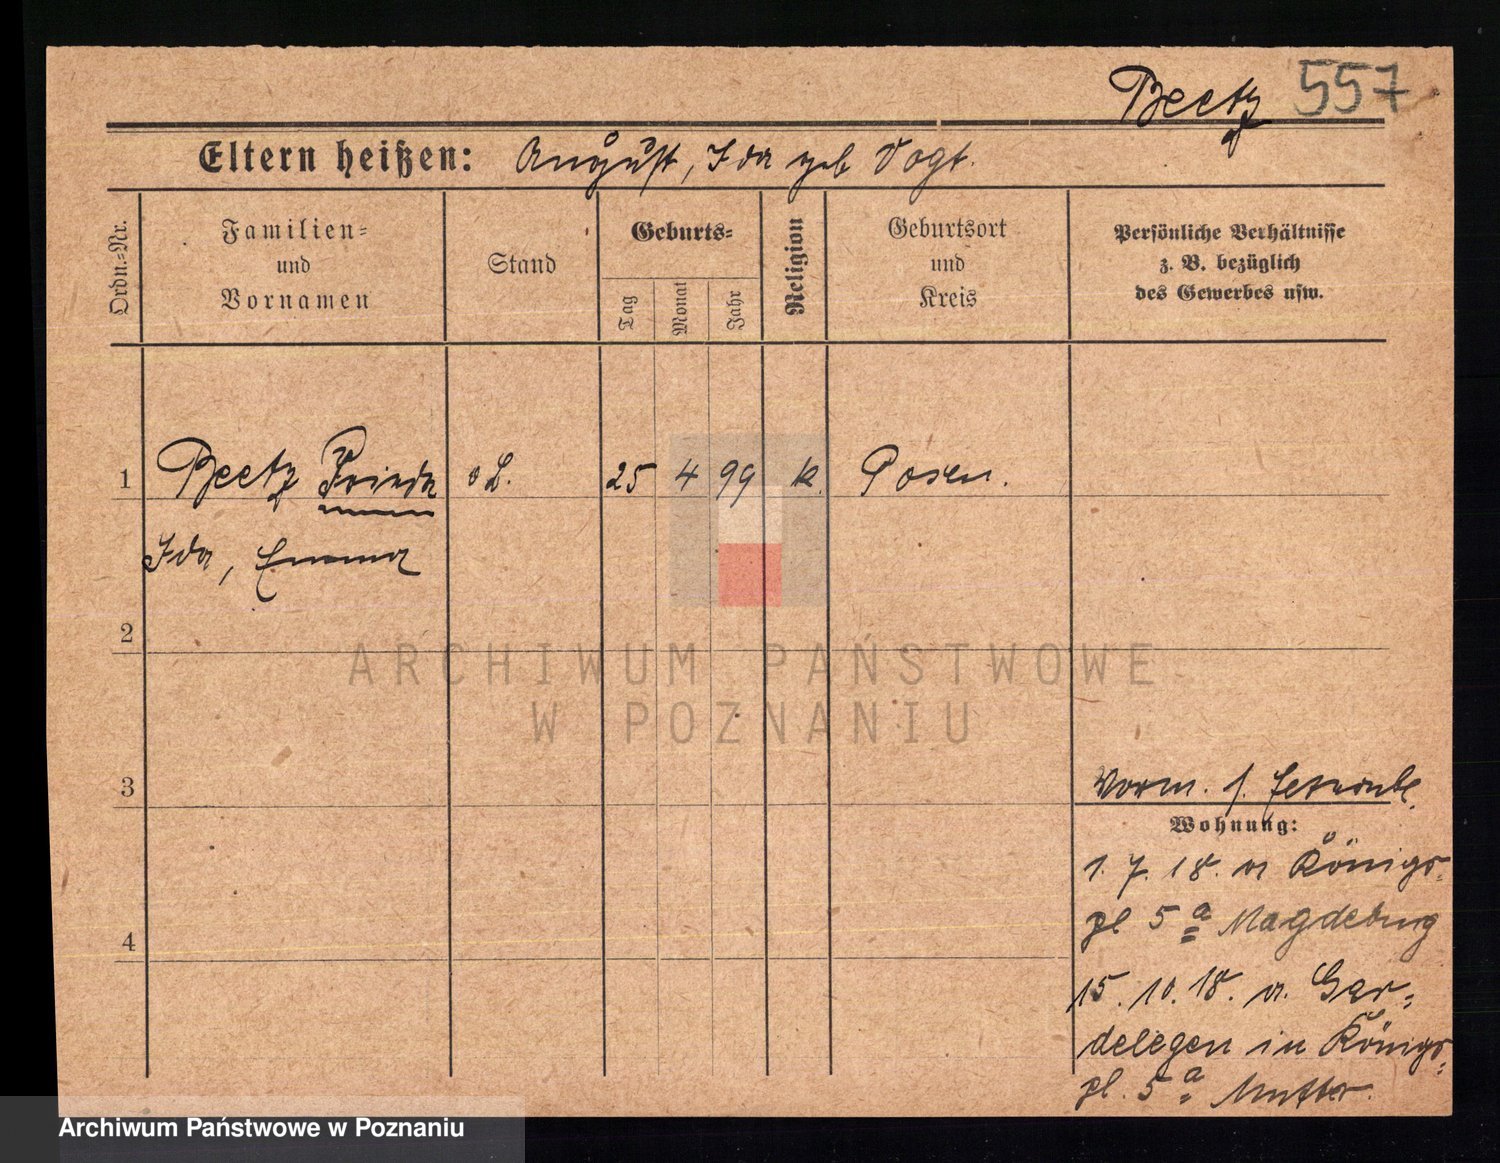 Beetz 557
Eltern heißen: August, Ida geb Vogt.
Ordn.-Nr.
Familien-
und
Vornamen
Stand
Geburts-
Tag
Monat
Jahr
Religion
Geburtsort
und
Kreis
Persönliche Verhältnisse
z. B. bezüglich
des Gewerbes usw.
1 Beetz Frieda oL. 25 4 99 k. Posen.
Ida, Emma
2
ARCHIWUM PAŃSTWOWE
W POZNANIU
3
Wohnung:
1. 7. 18. n Königs-
pl 5a Magdeburg
4
15. 10. 18. v. Gar-
delegen in Königs-
pl. 5a Mutter.
Archiwum Państwowe w Poznaniu